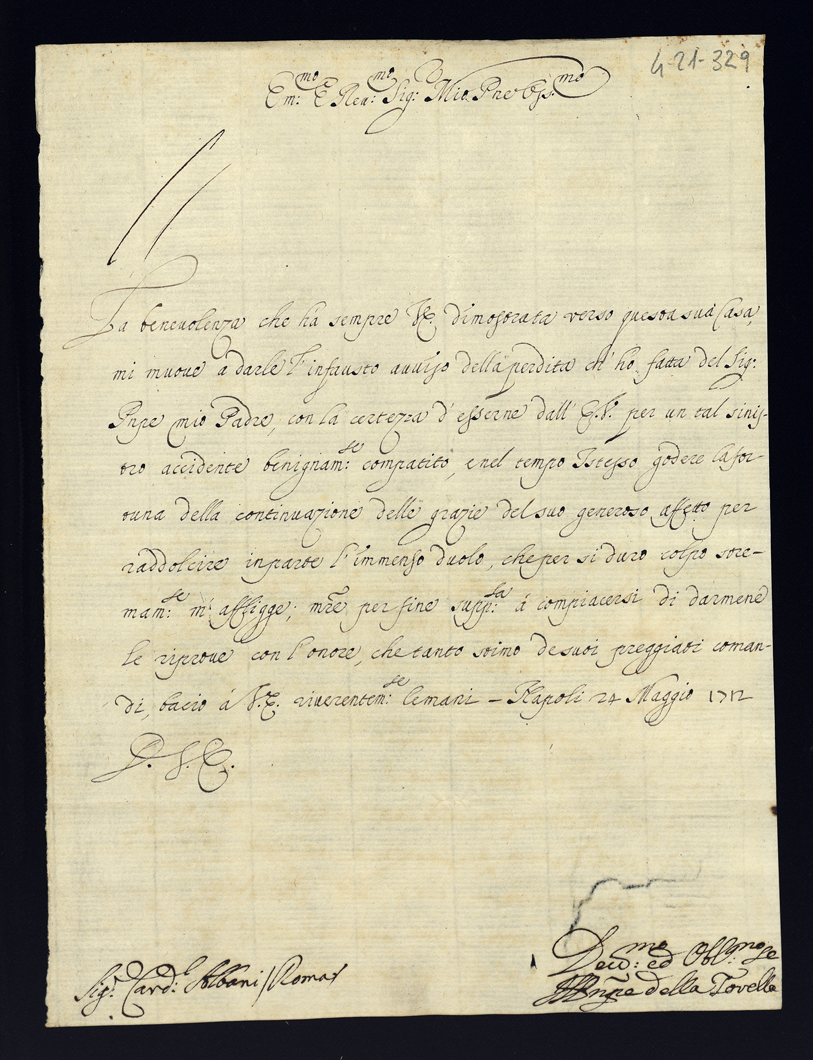 4-21-329
Em:mo E Reu:mo Sig:r Mio Pne Oss:mo
La beneuolenza che ha sempre V.E. dimostrata verso questa sua Casa,
mi muoue a darle l'infausto auuiso della perdita ch'ho fatta del Sig:
Pnpe mio Padre, con la certezza d'esserne dall'E.V. per un tal sinis-
tro accidente benignam:te compatito, e nel tempo Istesso godere la for
tuna della continuazione delle grazie del suo generoso affetto per
raddolcire in parte l'immenso duolo, che per si duro colpo stre-
mam:te m'affligge; mẽ per fine supp:la á compiacersi di darmene
le riproue con l'onore, che tanto stimo de suoi preggiati coman-
di, bacio á V.E. riuerentem:te le mani – Napoli 24 Maggio 1712
D. V. E.
Sig:r Card:l Albani / Roma
Deu:mo ed Obl:mo Se
Il Pnpe della Torella